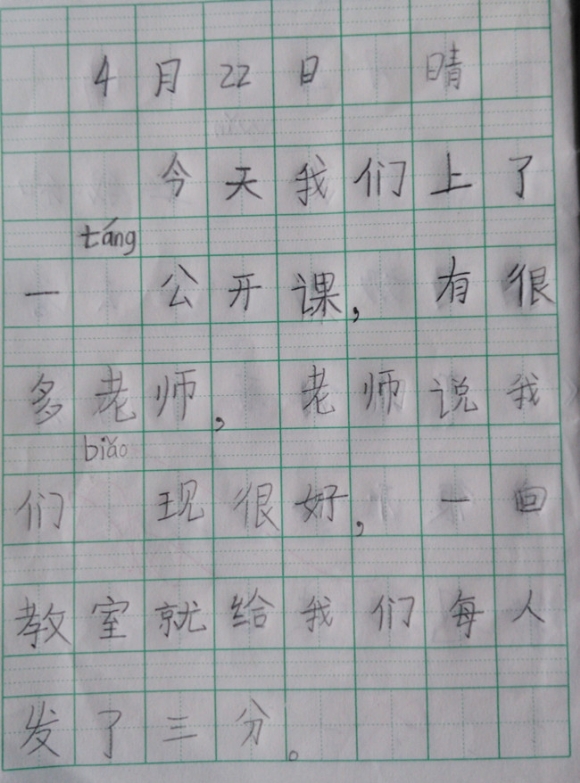 4月22日 晴
今天我们上了
táng
一 公开课,有很
多老师,老师说我
biǎo
们 现很好,一回
教室就给我们每人
发了三分。